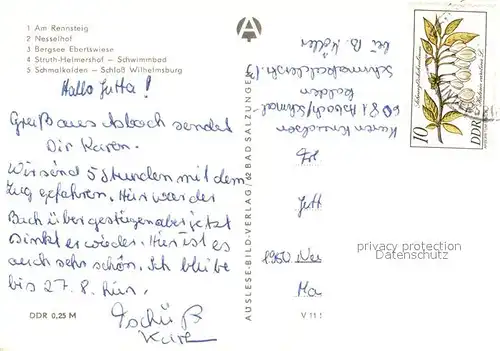 1 Am Rennsteig
2 Nesselhof
3 Bergsee Ebertswiese
4 Struth-Helmershof – Schwimmbad
5 Schmalkalden – Schloß Wilhelmsburg
Hallo Jutta!
Greiß aus Asbach sendet
Dir Karen.
Wir sind 5 Stunden mit dem
Zug gefahren. Hier war der
Bach übergestiegen aber jetzt
sinkt er wieder. Hier ist es
auch sehr schön. Ich bleibe
bis 27.8. hier.
Tschüß
DDR 0,25 M
AUSLESE-BILD-VERLAG / 62 BAD SALZUNGEN
A
Karen
6081 Asbach/Schmal-
kalden
bei B.
10
DDR
Jutt
Ma
privacy protection
Datenschutz
V 11 1